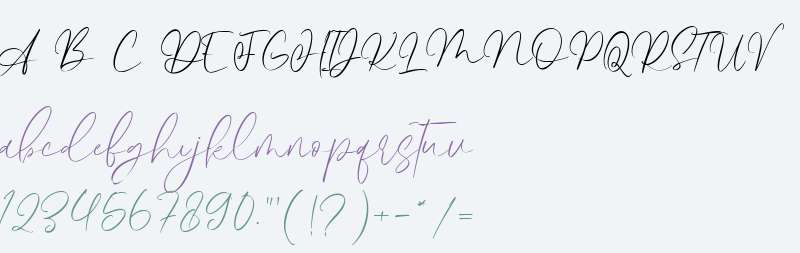 A B C DEFGHIJKLMNOPQRSTUV
abcdefghijklmnopqrstuv
1234567890."'(!?)+-*/=